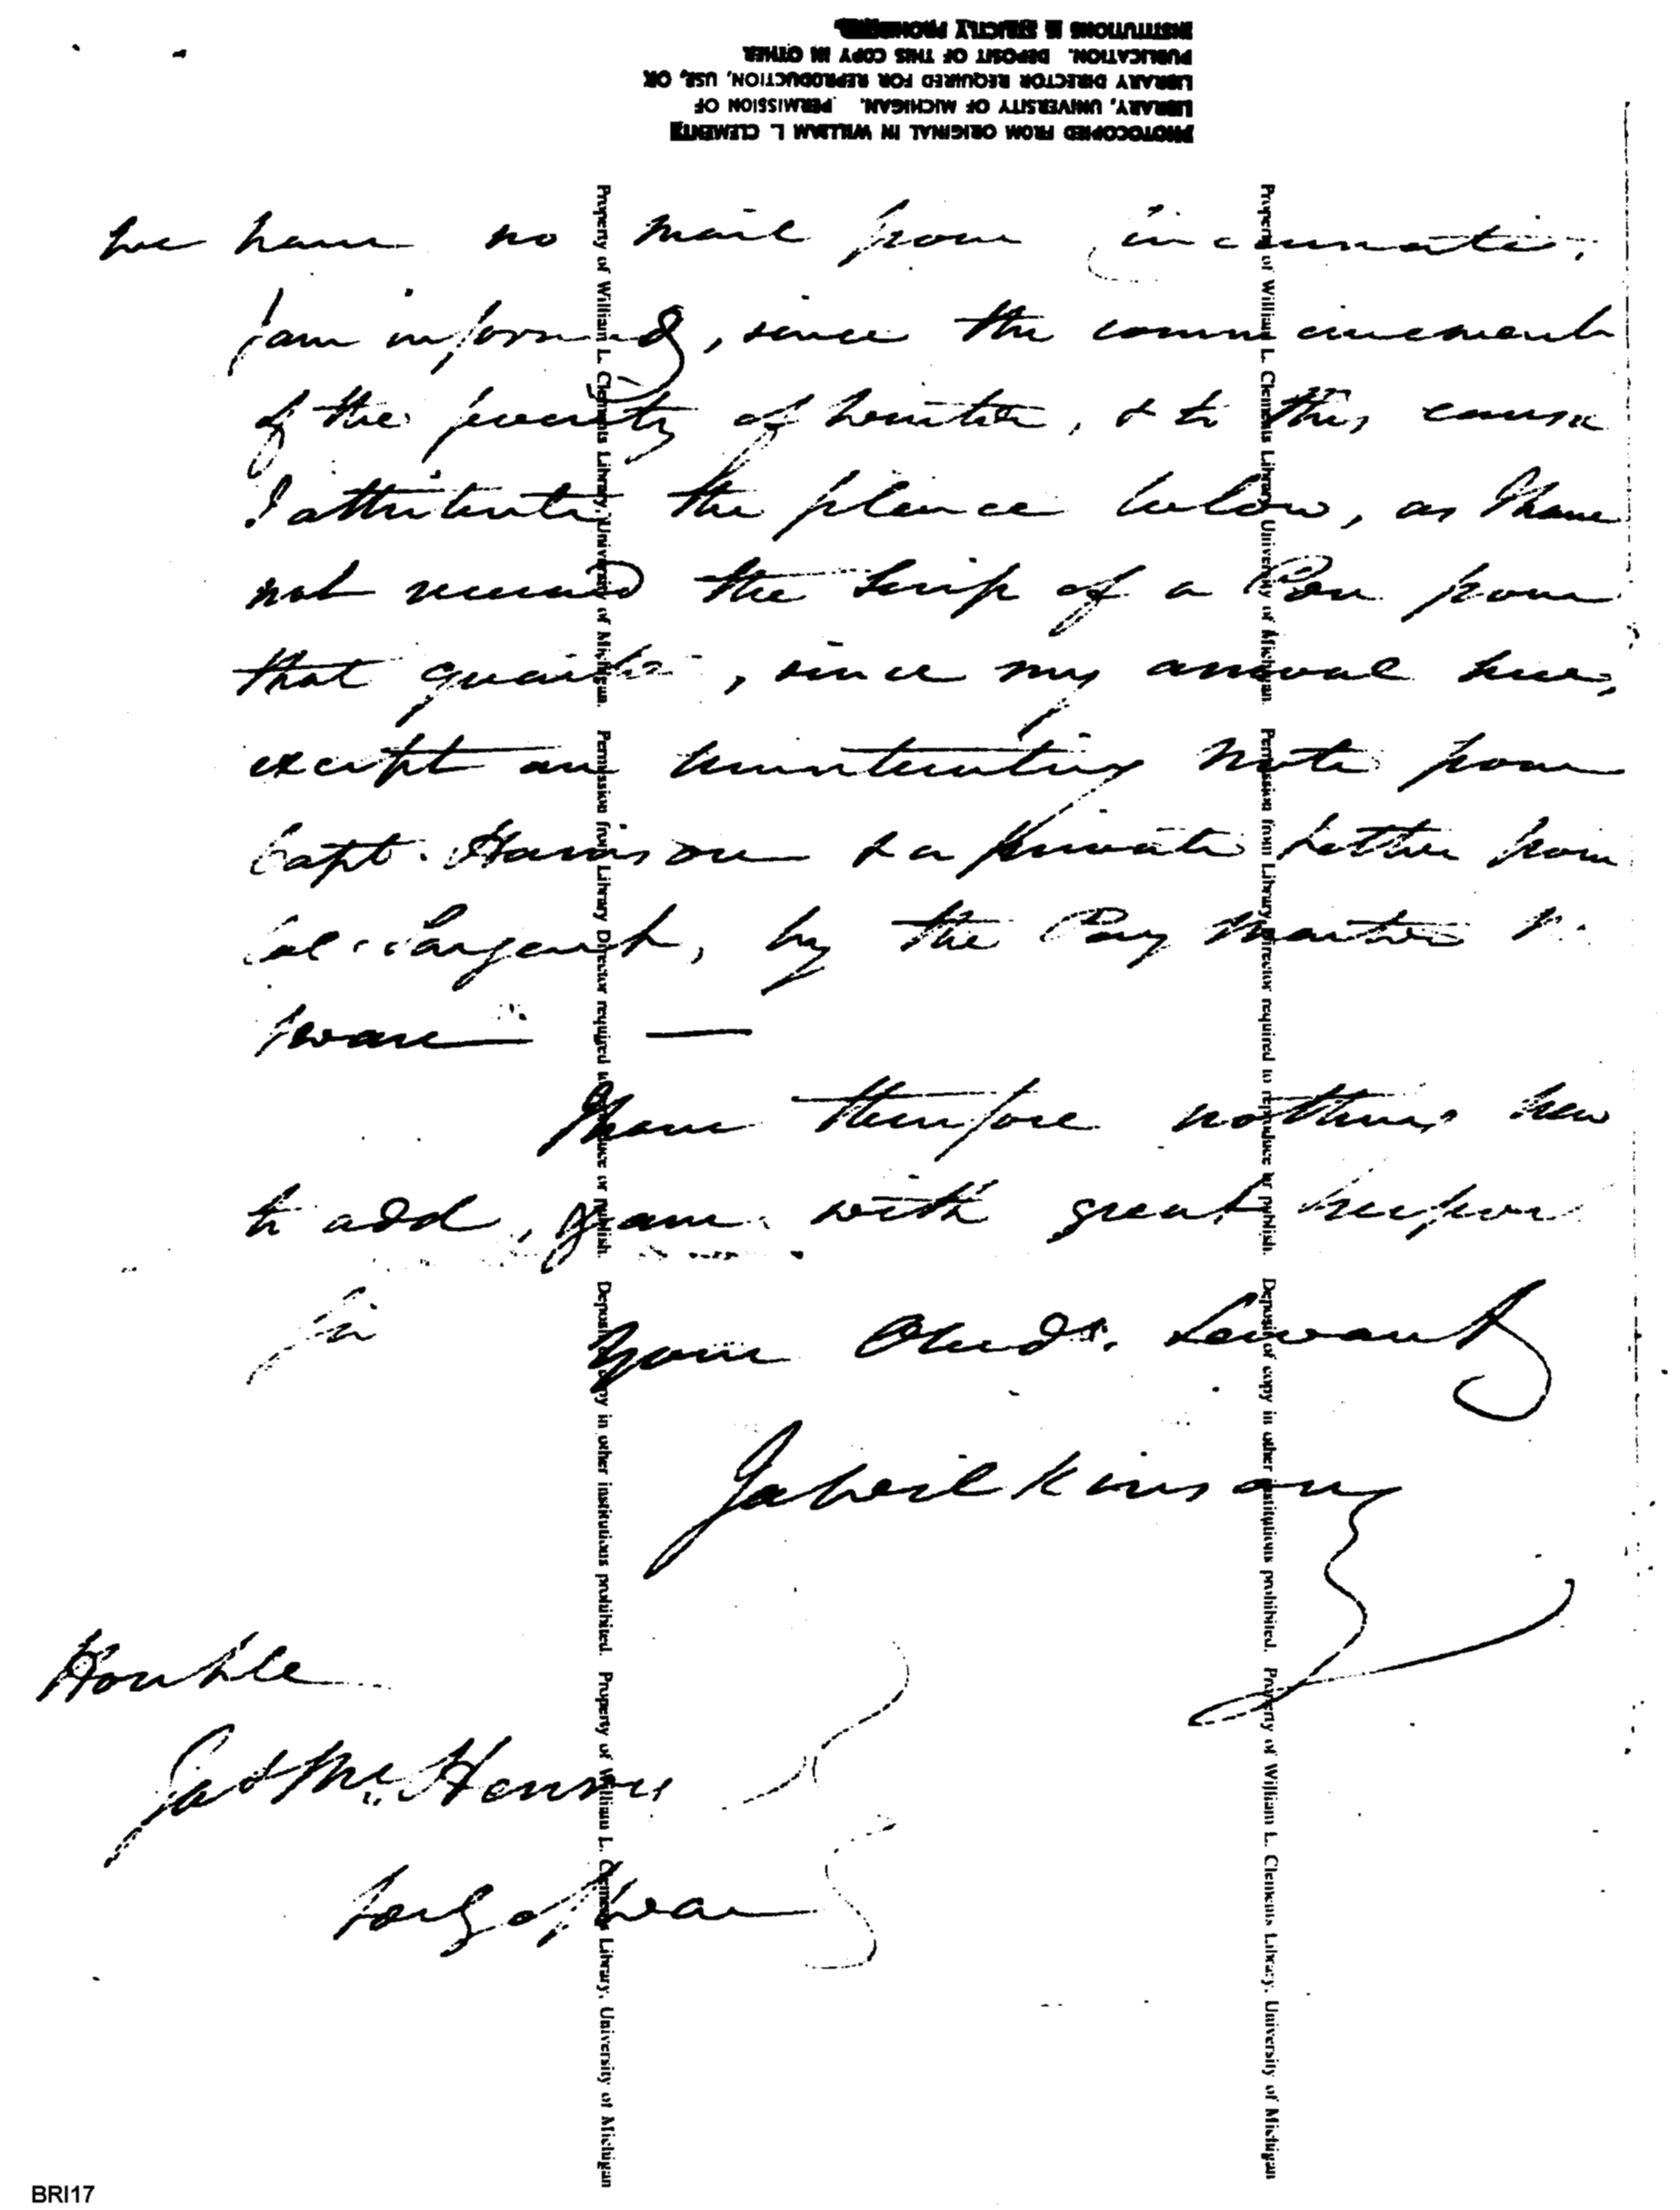 PHOTOCOPIED FROM ORIGINAL IN WILLIAM L. CLEMENTS
LIBRARY, UNIVERSITY OF MICHIGAN. PERMISSION OF
LIBRARY DIRECTOR REQUIRED FOR REPRODUCTION, USE, OR
PUBLICATION. DEPOSIT OF THIS COPY IN OTHER
INSTITUTIONS IS STRICTLY PROHIBITED.
We have no mail from Cincinnati,
I am informed, since the commencement
of the severity of Winter, & to this cause
I attribute the silence below, as I have
not received the Scrip of a Pen from
that quarter, since my arrival here,
except an uninteresting Note from
Capt. Harrison & a private Letter from
Col. Sargent, by the Pay Master
Swan —
I have therefore nothing new
to add, & am with great respect
Sir
Your Obedt. Servant
Ja Wilkinson
Honble
Jas McHenry
Secy of War
Property of William L. Clements Library, University of Michigan. Permission from Library Director required to reproduce or publish. Deposit of copy in other institutions prohibited. Property of William L. Clements Library, University of Michigan
Property of William L. Clements Library, University of Michigan. Permission from Library Director required to reproduce or publish. Deposit of copy in other institutions prohibited. Property of William L. Clements Library, University of Michigan
BRI17